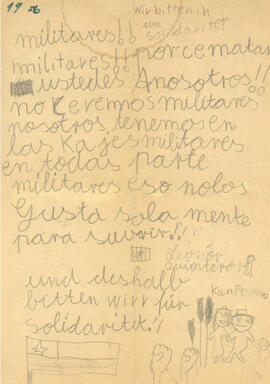 19 76
wir bitten in
um
solidaritet
militares!!
militares!! por ce matan
ustedes Anosotros!!
no Keremos militares
nosotros tenemos en
las Kajes militares
en todas parte
militares eso nolos
Gusta sola mente
para suvrir!!
Leonor
Quinteros
und deshalb
bitten wirr für
solidaritet!!